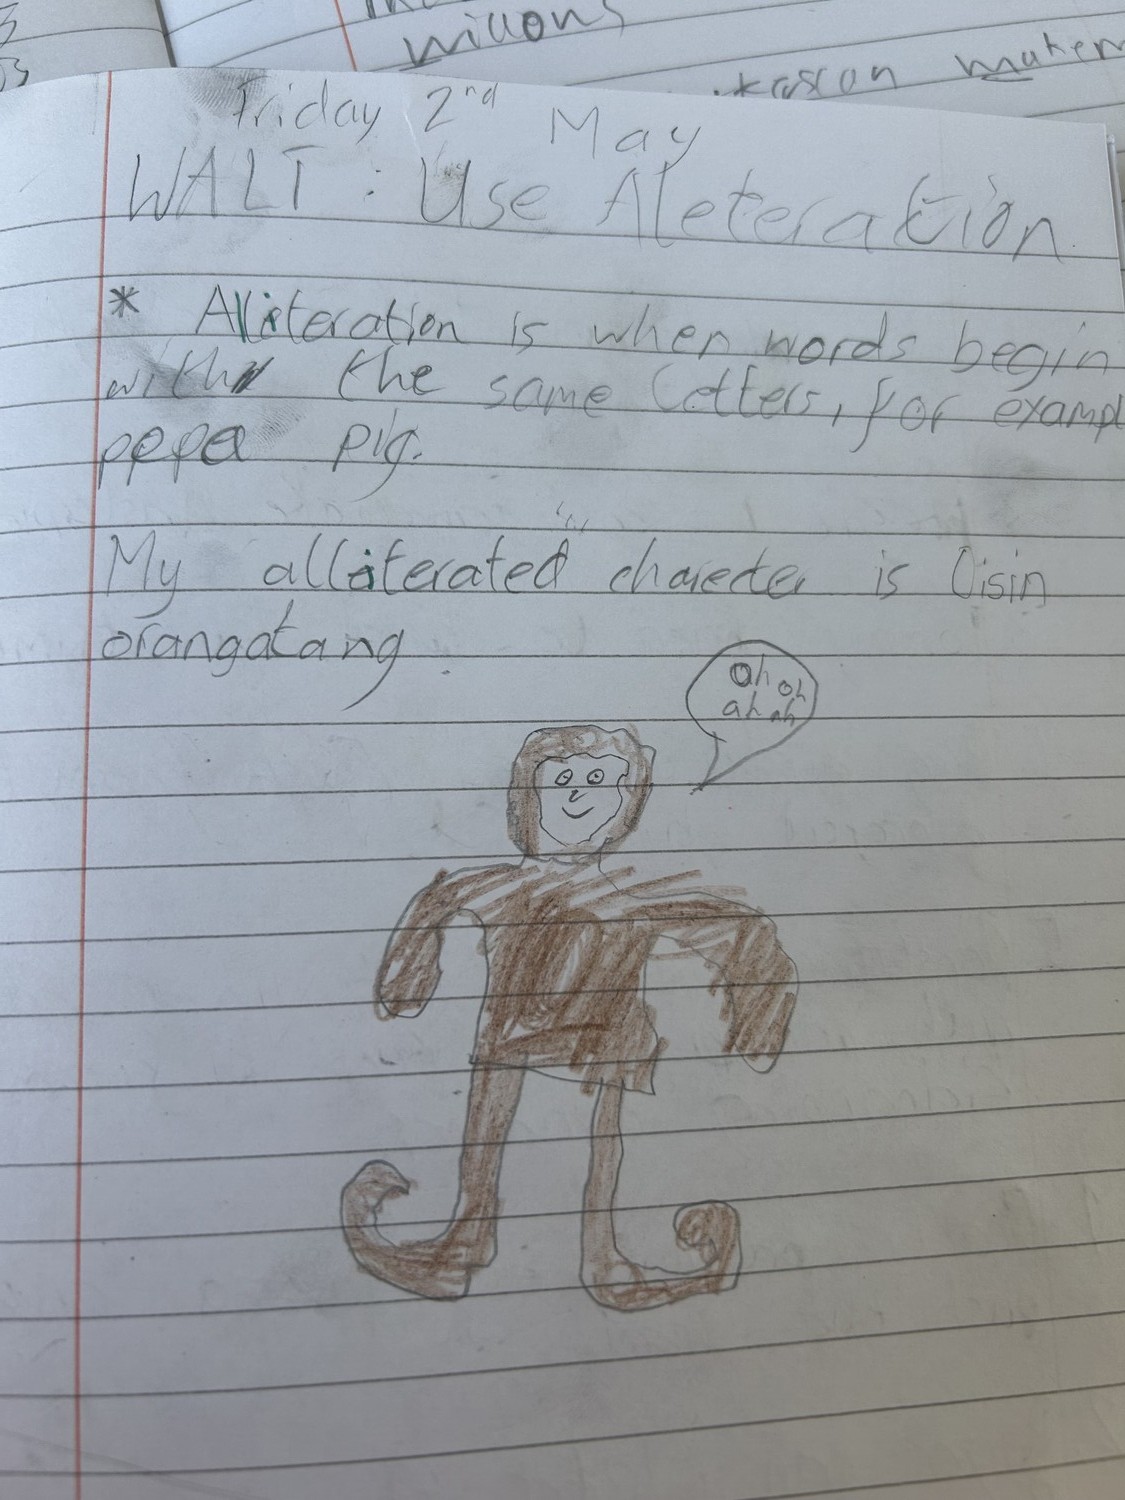 millions
maken
Friday 2nd May
WALT : Use Aleteration
* Alliteration is when words begin
with the same letters, for exampl
pepa pig.
My alliterated charecter is Oisin
orangatang.
oh oh
ah ah